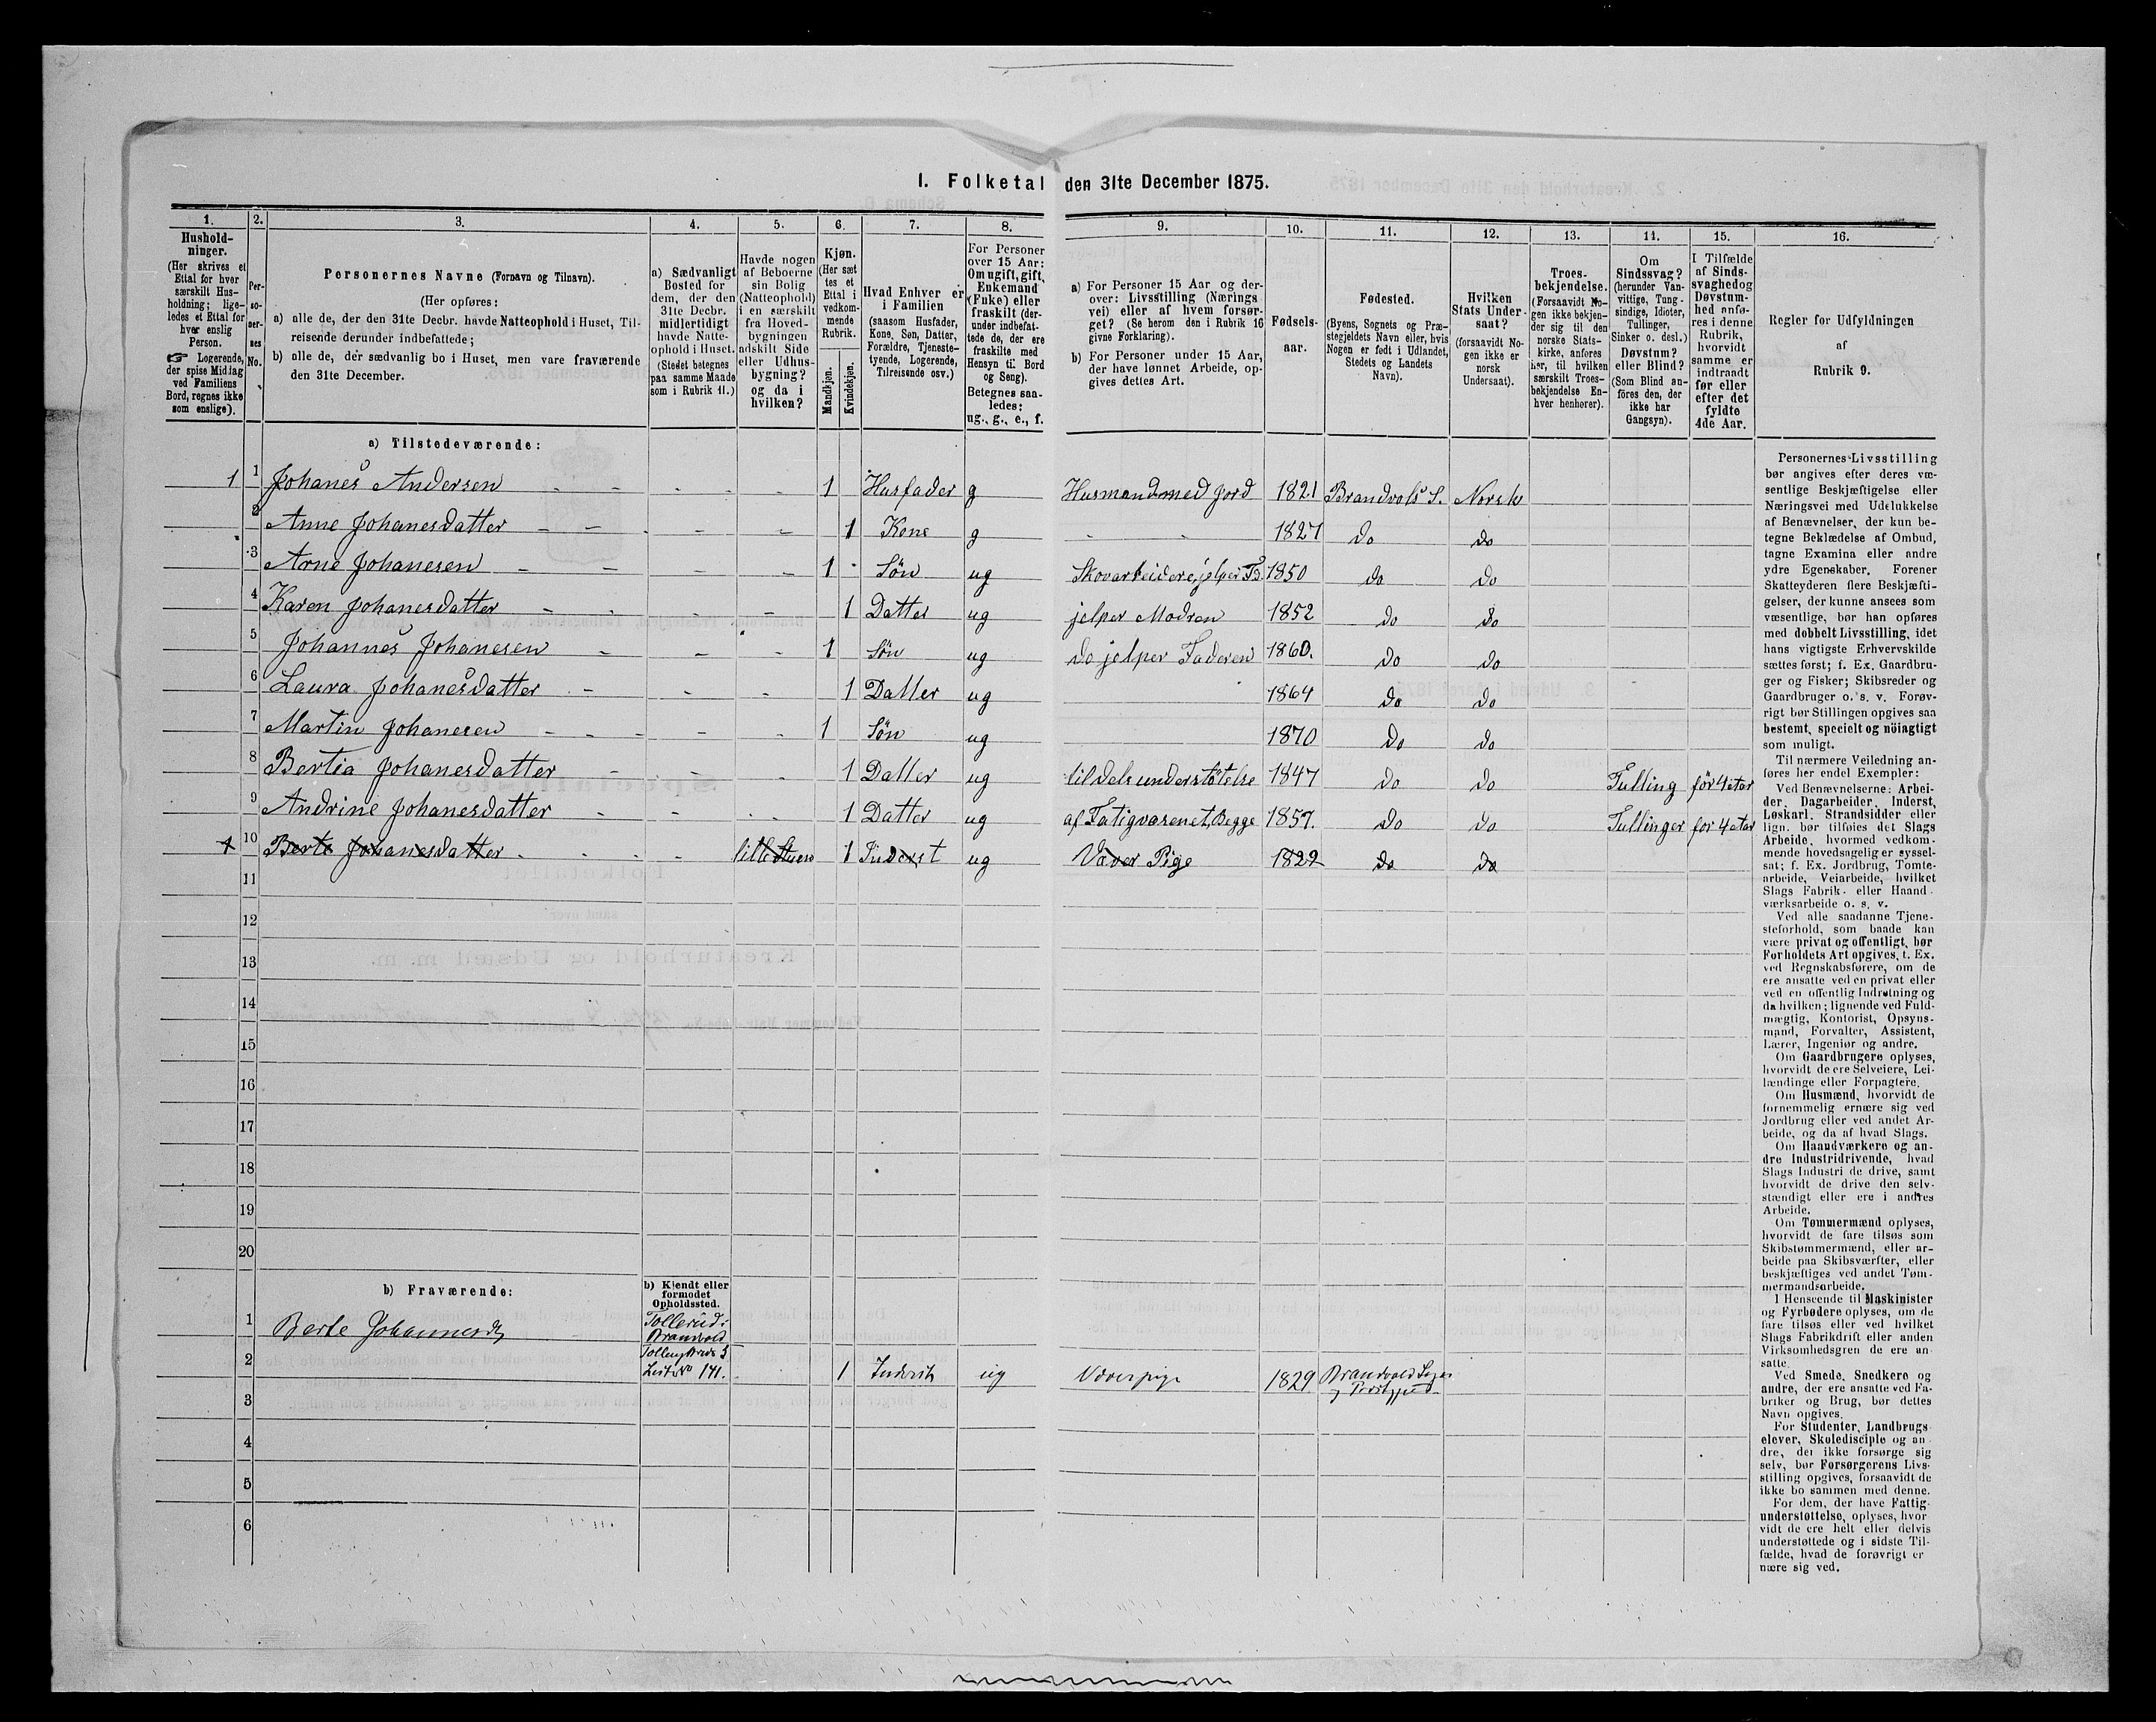 1. Folketal den 31te December 1875.
1. 2. 3. 4. 5. 6. 7. 8. 9. 10. 11. 12. 13. 14. 15. 16.
Hushold-
ninger.
(Her skrives et
Ettal for hver
særskilt Hus-
holdning; lige-
ledes et Ettal for
hver enslig
Person.
☞ Logerende,
der spise Middag
ved Familiens
Bord, regnes ikke
som enslige).
Per-
so-
ner-
nes
No.
Personernes Navne (Fornavn og Tilnavn).
(Her opføres:
a) alle de, der den 31te Decbr. havde Natteophold i Huset, Til-
reisende derunder indbefattede;
b) alle de, der sædvanlig bo i Huset, men vare fraværende
den 31te December.
a) Sædvanligt
Bosted for
dem, der den
31te Decbr.
midlertidigt
havde Natte-
ophold i Huset.
(Stedet betegnes
paa samme Maade
som i Rubrik 11.)
Havde nogen
af Beboerne
sin Bolig
(Natteophold)
i en særskilt
fra Hoved-
bygningen
adskilt Side
eller Udhus-
bygning?
og da i
hvilken?
Kjøn.
(Her sæt
tes et
Ettal i
vedkom-
mende
Rubrik.
Mandkjøn.
Kvindekjøn.
Hvad Enhver er
i Familien
(saasom Husfader,
Kone, Søn, Datter,
Forældre, Tjeneste-
tyende, Logerende,
Tilreisende osv.)
For Personer
over 15 Aar:
Om ugift, gift,
Enkemand
(Enke) eller
fraskilt (der-
under indbefat-
tede de, der ere
fraskilte med
Hensyn til Bord
og Seng).
Betegnes saa-
ledes:
ug., g., e., f.
a) For Personer 15 Aar og der-
over: Livsstilling (Nærings
vei) eller af hvem forsør-
get? (Se herom den i Rubrik 16
givne Forklaring).
b) For Personer under 15 Aar,
der have lønnet Arbeide, op-
gives dettes Art.
Fødsels-
aar.
Fødested.
(Byens, Sognets og Præ-
stegjeldets Navn eller, hvis
Nogen er født i Udlandet,
Stedets og Landets
Navn).
Hvilken
Stats Under-
saat?
(forsaavidt No-
gen ikke er
norsk
Undersaat).
Troes-
bekjendelse.
(Forsaavidt No-
gen ikke bekjen-
der sig til den
norske Stats-
kirke, anføres
her, til hvilken
særskilt Troes-
bekjendelse En-
hver henhører).
Om
Sindssvag?
(herunder Van-
vittige, Tung-
sindige, Idioter,
Tullinger,
Sinker o. desl.)
Døvstum?
eller Blind?
(Som Blind an-
føres den, der
ikke har
Gangsyn).
I Tilfælde
af Sinds-
svaghed og
Døvstum-
hed anfø-
res i denne
Rubrik,
hvorvidt
samme er
indtraadt
før eller
efter det
fyldte
4de Aar.
Regler for Udfyldningen
af
Rubrik 9.
a) Tilstedeværende:
1 1 Johanes Andersen 1 Husfader g Husmand med Jord 1821 Brandvols S. Norsk
2 Anne Johanesdatter 1 Kone g 1827 do do
3 Arne Johanesen 1 Søn ug Skovarbeidere, jelper 1850 do do
4 Karen Johanesdatter 1 Datter ug jelper Modren 1852 do do
5 Johannes Johanesen 1 Søn ug do jelper Faderen 1860. do do
6 Laura Johanesdatter 1 Datter ug 1864 do do
7 Martin Johanesen 1 Søn ug 1870 do do
8 Bertia Johanesdatter 1 Datter ug tildels understøtelse 1847 do do Tulling før 4 etar
9 Andrine Johanesdatter 1 Datter ug af Fatigvæsenet, Begge 1857. do do Tullinger for 4 etar
1 10 Berte Johanesdatter lille Stuen 1 Inderst ug Væver Pige 1829 do do
11
12
13
14
15
16
17
18
19
20
b) Fraværende:
b) Kjendt eller
formodet
Opholdssted.
1 Berte Johannesd Tollerud i
Branvold
2 Tællingskreds 5
Liste No 141. 1 Inderst ug Væverpige 1829 Brandvold Sogn
og Præstegjeld
3
4
5
6
Personernes Livsstilling
bør angives efter deres væ-
sentlige Beskjæftigelse eller
Næringsvei med Udelukkelse
af Benævnelser, der kun be-
tegne Beklædelse af Ombud,
tagne Examina eller andre
ydre Egenskaber. Forener
Skatteyderen flere Beskjæfti-
gelser, der kunne ansees som
væsentlige, bør han opføres
med dobbelt Livsstilling, idet
hans vigtigste Erhvervskilde
sættes først; f. Ex. Gaardbru-
ger og Fisker; Skibsreder og
Gaardbruger o. s. v. Forøv-
rigt bør Stillingen opgives saa
bestemt, specielt og nöiagtigt
som muligt.
Til nærmere Veiledning an-
føres her endel Exempler:
Ved Benævnelserne: Arbei-
der, Dagarbeider, Inderst,
Løskarl, Strandsidder eller
lign. bør tilføies det Slags
Arbeide, hvormed vedkom-
mende hovedsagelig er syssel-
sat; f. Ex. Jordbrug, Tomte-
arbeide, Veiarbeide, hvilket
Slags Fabrik- eller Haand-
værksarbeide o. s. v.
Ved alle saadanne Tjene-
steforhold, som baade kan
være privat og offentligt, bør
Forholdets Art opgives, t. Ex.
ved Regnskabsførere, om de
ere ansatte ved en privat eller
ved en offentlig Indretning og
da hvilken; lignende ved Fuld-
mægtig, Kontorist, Opsyns-
mand, Forvalter, Assistent,
Lærer, Ingeniør og andre.
Om Gaardbrugere oplyses,
hvorvidt de ere Selveiere, Lei-
lændinge eller Forpagtere.
Om Husmænd, hvorvidt de
fornemmelig ernære sig ved
Jordbrug eller ved andet Ar-
beide, og da af hvad Slags.
Om Haandværkere og an-
dre Industridrivende, hvad
Slags Industri de drive, samt
hvorvidt de drive den selv-
stændigt eller ere i andres
Arbeide.
Om Tømmermænd oplyses,
hvorvidt de fare tilsøs som
Skibstømmermænd, eller ar-
beide paa Skibsværfter, eller
beskjæftiges ved andet Tøm-
mermandsarbeide.
I Henseende til Maskinister
og Fyrbødere oplyses, om de
fare tilsøs eller ved hvilket
Slags Fabrikdrift eller anden
Virksomhedsgren de ere an-
satte.
Ved Smede, Snedkere og
andre, der ere ansatte ved Fa-
briker og Brug, bør dettes
Navn opgives.
For Studenter, Landbrugs-
elever, Skoledisciple og an-
dre, der ikke forsørge sig
selv, bør Forsørgerens Livs-
stilling opgives, forsaavidt de
ikke bo sammen med denne.
For dem, der have Fattig-
understøttelse, oplyses, hvor
vidt de ere helt eller delvis
understøttede og i sidste Til-
fælde, hvad de forøvrigt er
nære sig ved.